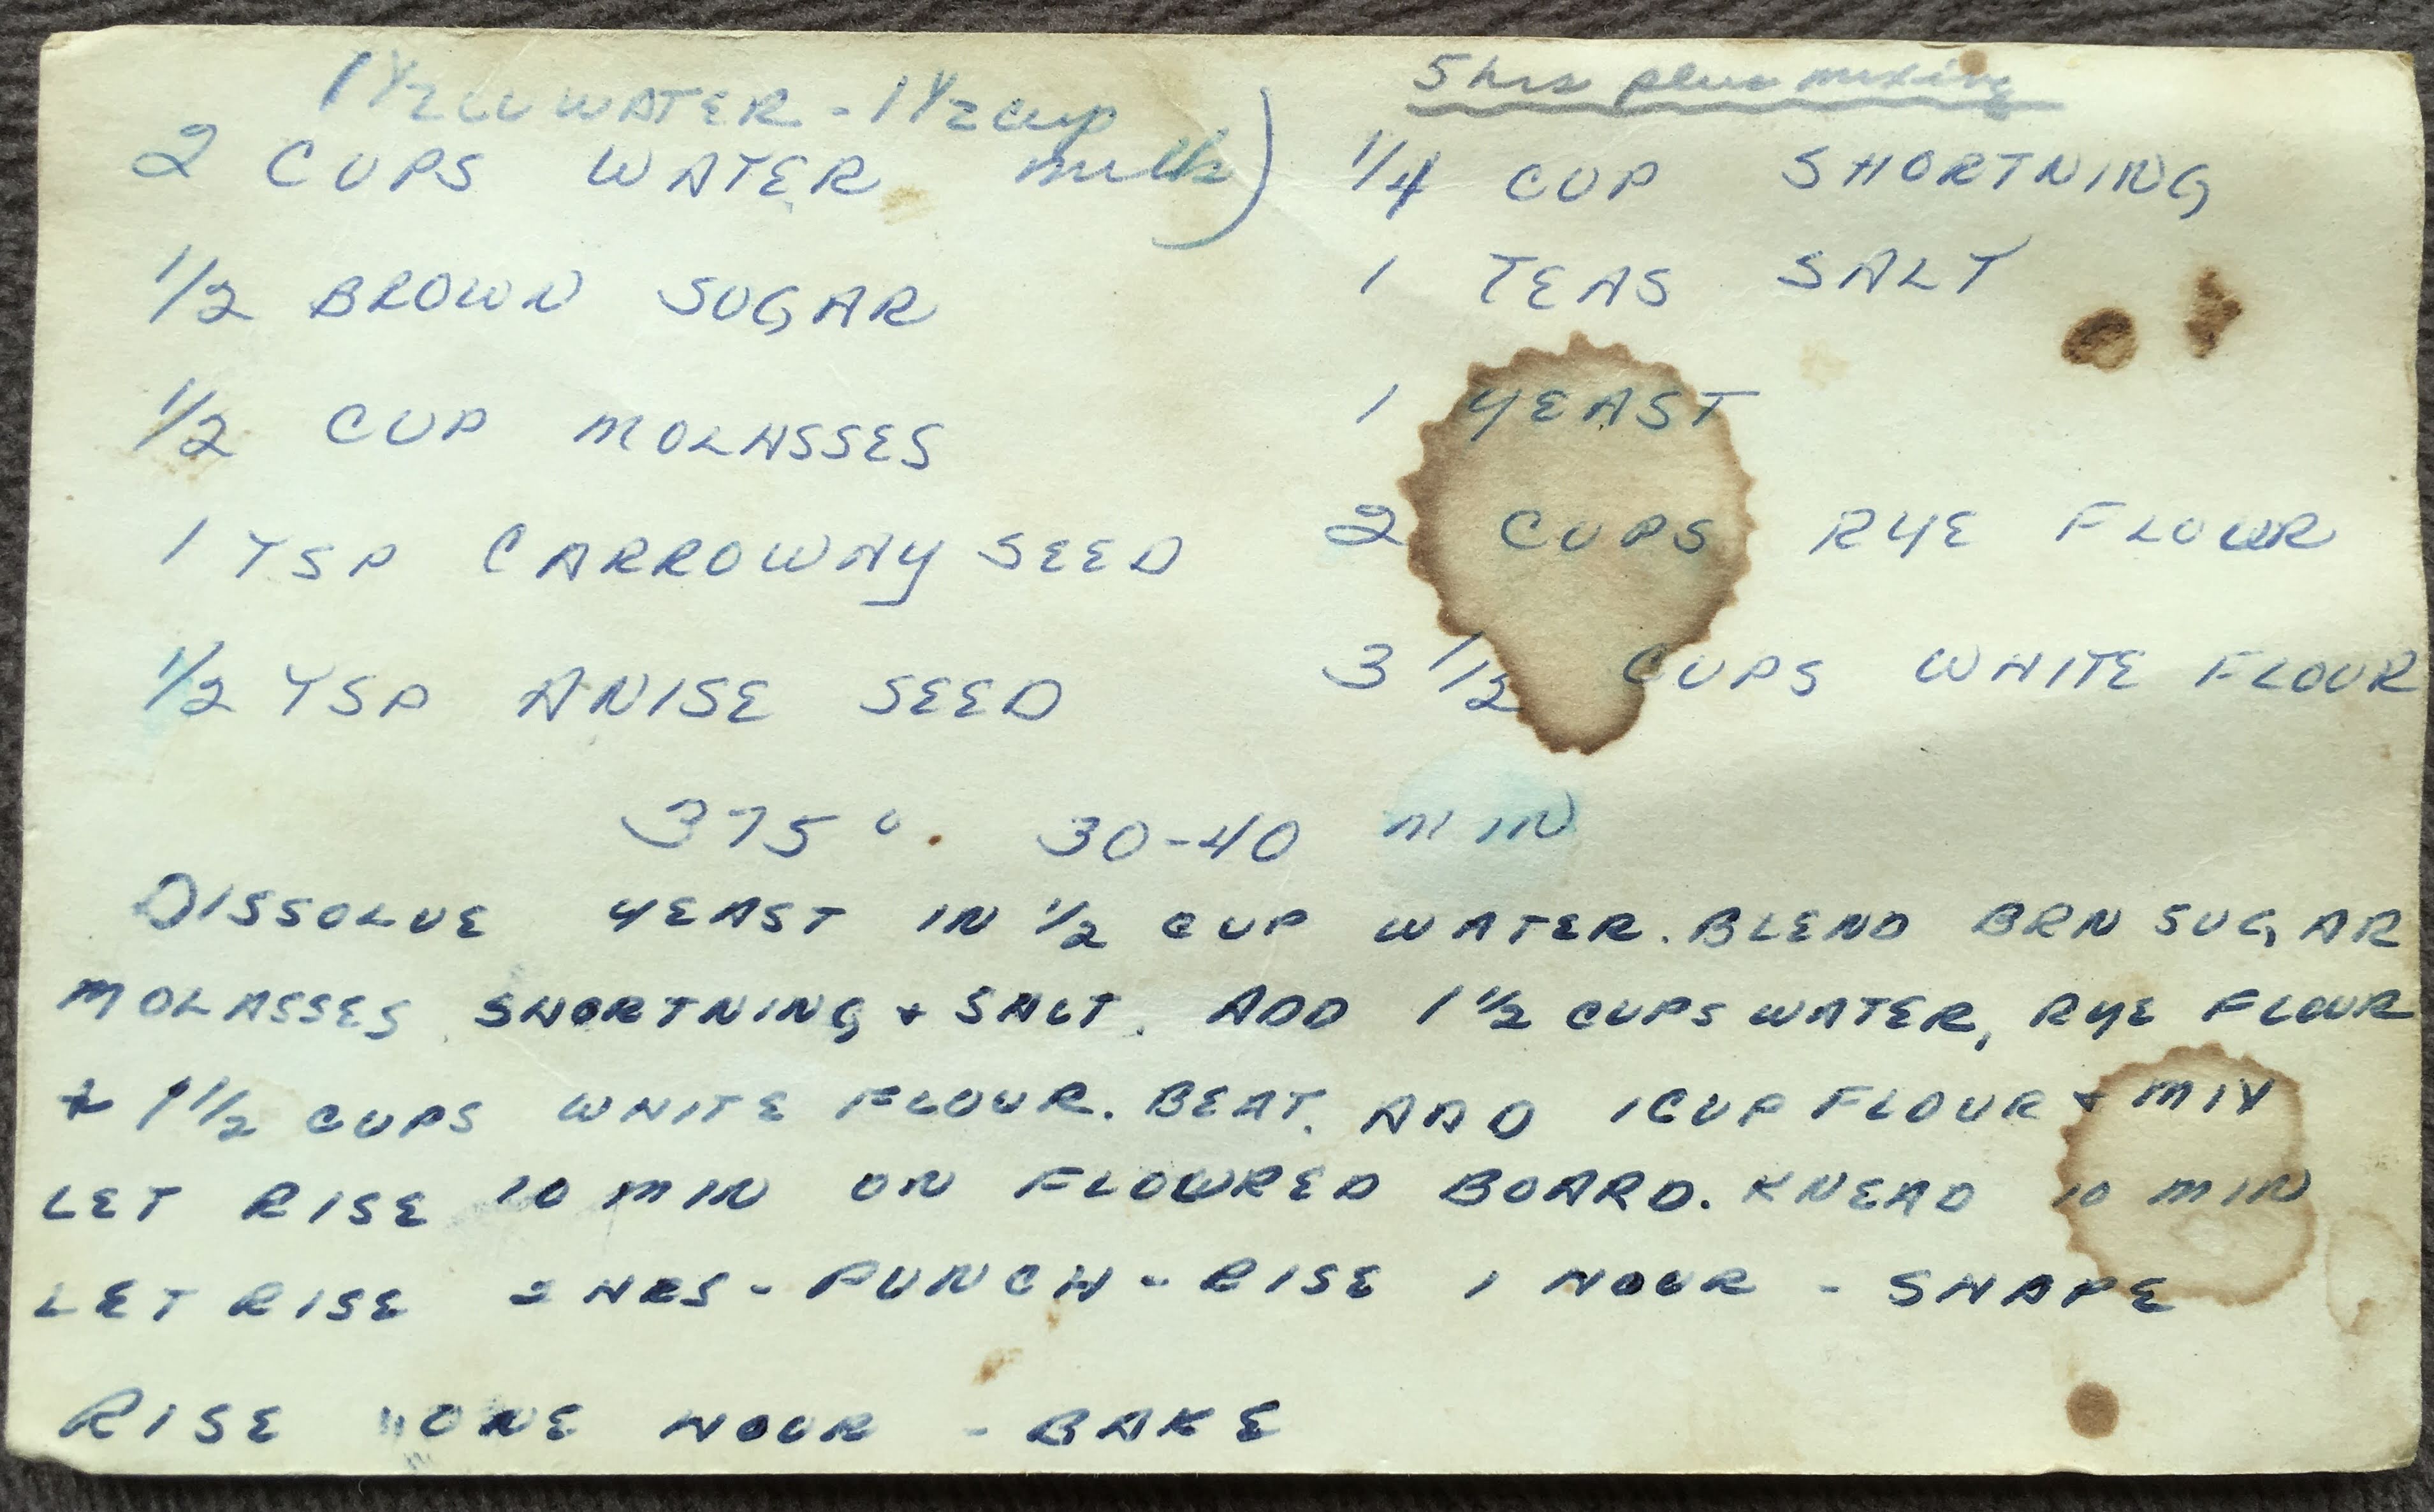 5 hrs plus mixing
1 1/2 cu WATER - 1 1/2 cup
milk)
2 CUPS WATER
1/2 BROWN SUGAR
1/2 CUP MOLASSES
1 TSP CARROWAY SEED
1/2 TSP ANISE SEED
1/4 CUP SHORTNING
1 TEAS SALT
1 YEAST
2 CUPS RYE FLOUR
3 1/2 CUPS WHITE FLOUR
375°. 30-40 MIN
DISSOLVE YEAST IN 1/2 CUP WATER. BLEND BRN SUGAR
MOLASSES SHORTNING + SALT. ADD 1 1/2 CUPS WATER, RYE FLOUR
+ 1 1/2 CUPS WHITE FLOUR. BEAT. ADD 1 CUP FLOUR + MIX
LET RISE 10 MIN ON FLOWRED BOARD. KNEAD 10 MIN
LET RISE 2 HRS - PUNCH - RISE 1 HOUR - SHAPE
RISE ONE HOUR - BAKE